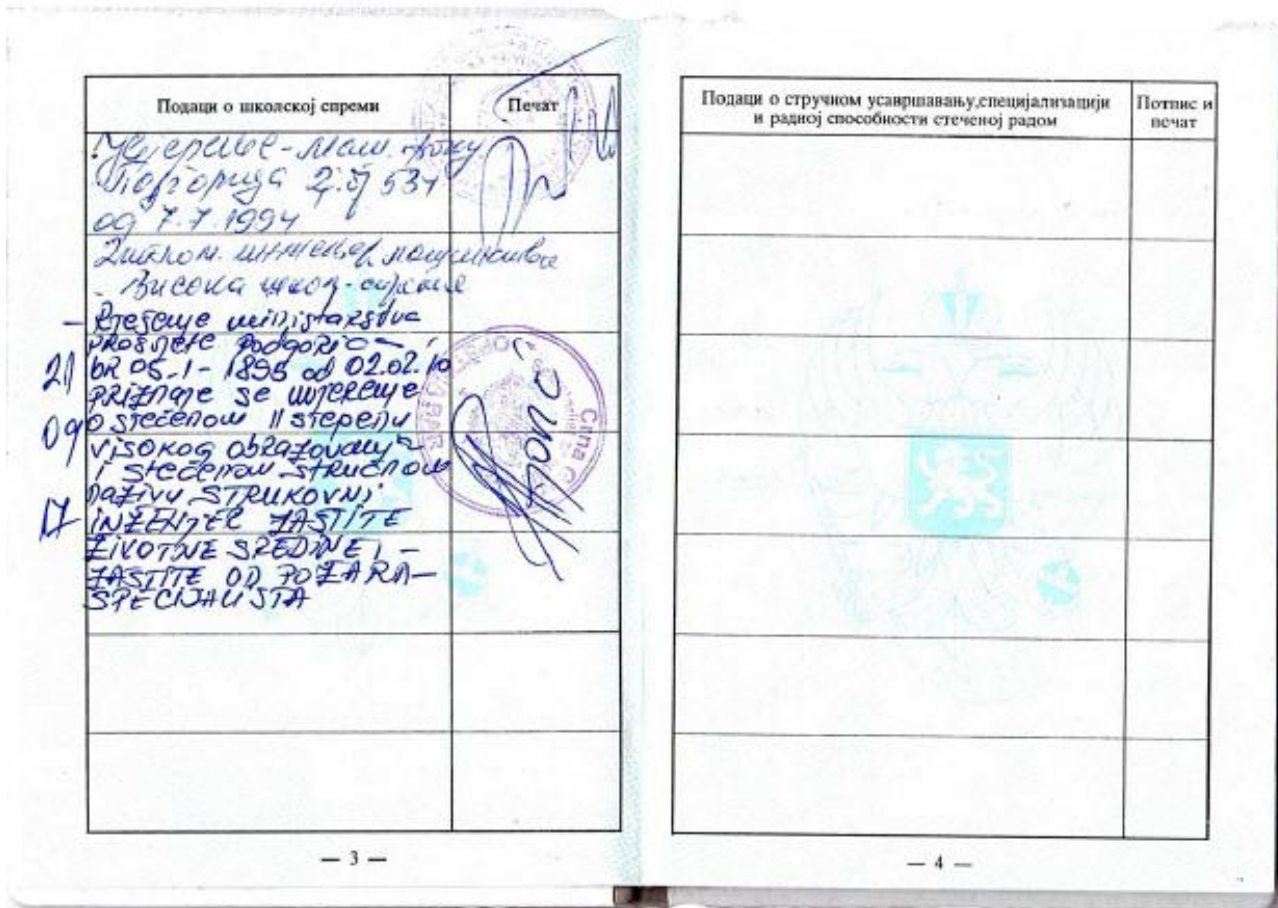 Подаци о школској спреми
Печат
Увјерење - маш. факу
Подгорица Д.бј 534
од 7.7.1994
Диплом. инжењер машинства
Висока школ. спрема
- Rješenje ministarstva
PROSVJETE Podgorica
21
BR 05-1-1895 od 02.02.10
PRIZNAJE SE UVJERENJE
09
O STEČENOM II STEPENU
VISOKOG OBRAZOVANJA
I STEČENOM STRUČNOM
NAZIVU STRUKOVNI
17
INŽENJER ZAŠTITE
ŽIVOTNE SREDINE I -
ZAŠTITE OD POŽARA -
SPECIJALISTA
Crna G
— 3 —
Подаци о стручном усавршавању,специјализацији
и радној способности стеченој радом
Потпис и
печат
— 4 —